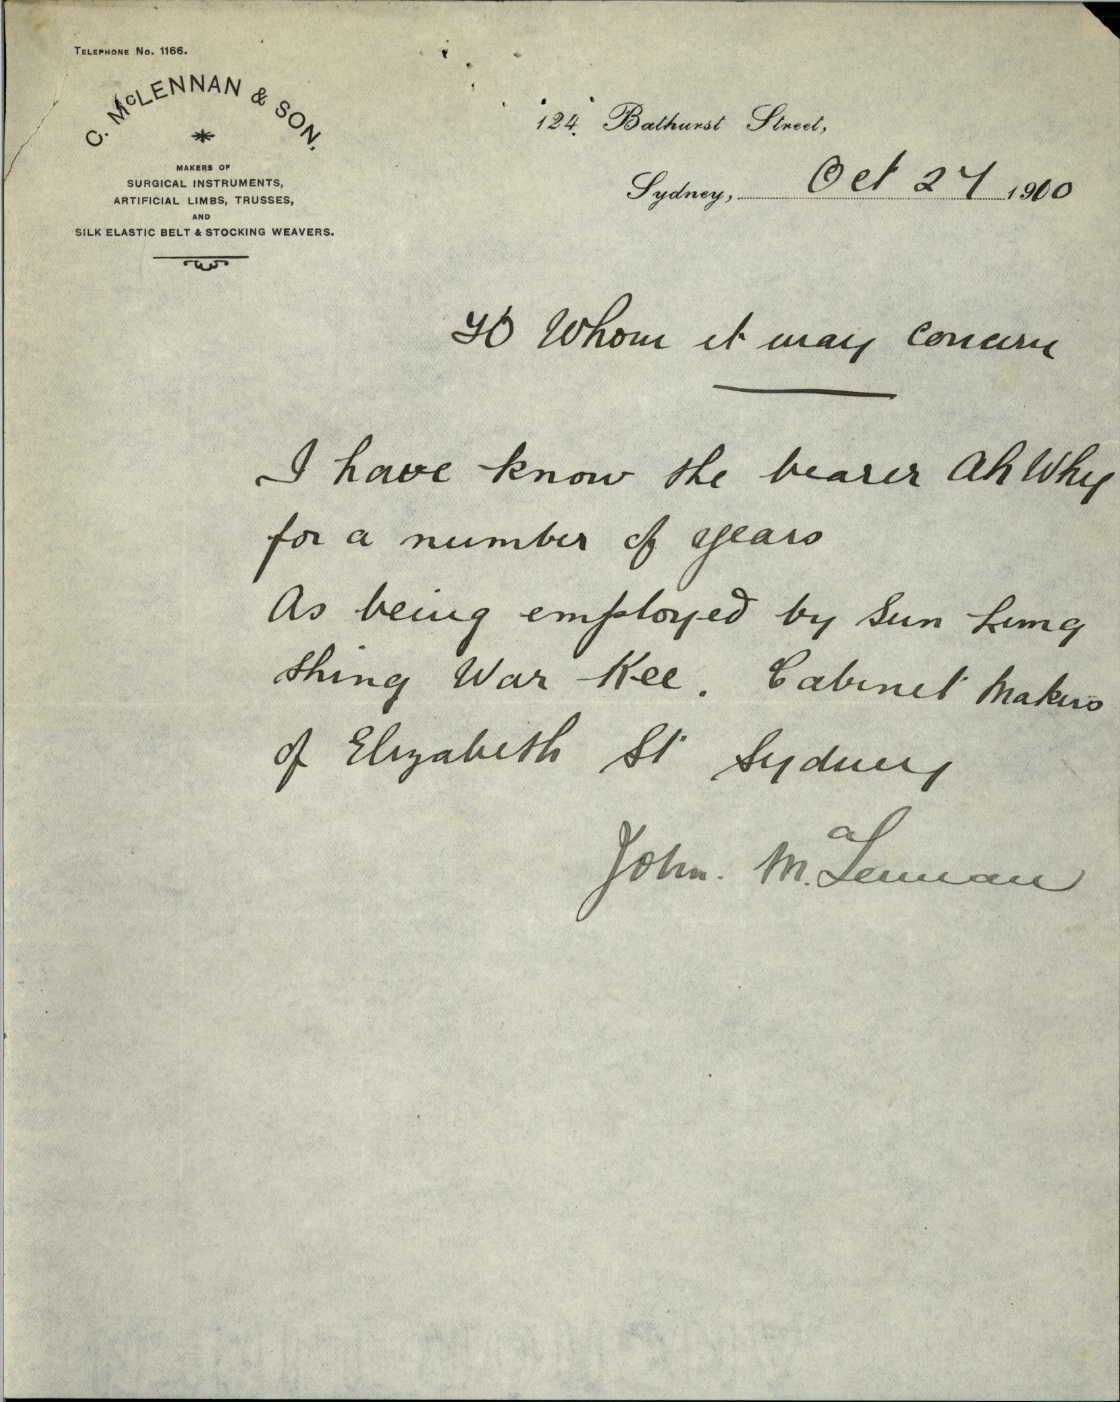 TELEPHONE No. 1166.
C. McLENNAN & SON,
MAKERS OF
SURGICAL INSTRUMENTS,
ARTIFICIAL LIMBS, TRUSSES,
AND
SILK ELASTIC BELT & STOCKING WEAVERS.
124 Bathurst Street,
Sydney, Oct 27 1900
To Whom it may concern
I have know the bearer Ah Why
for a number of years
As being employed by Sun
Shing War Kee. Cabinet Makers
of Elizabeth St Sydney
John. McLennan